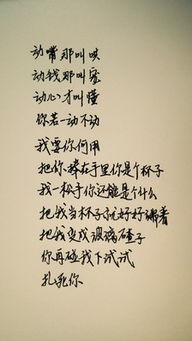 动嘴那叫哄
动钱那叫宠
动心才叫懂
你若一动不动
我要你何用
把你捧在手里你是个杯子
我一松手你还能是个什么
把我当杯子就好好捧着
把我变成玻璃碴子
你再碰我下试试
扎死你